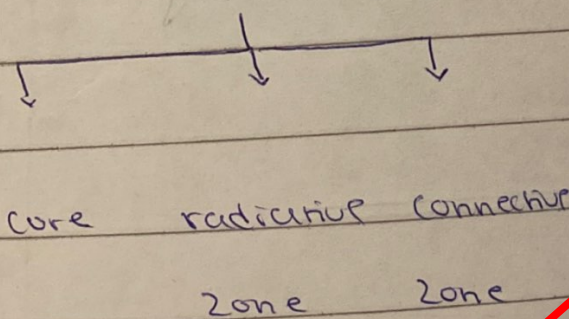 core radiative connective
zone zone